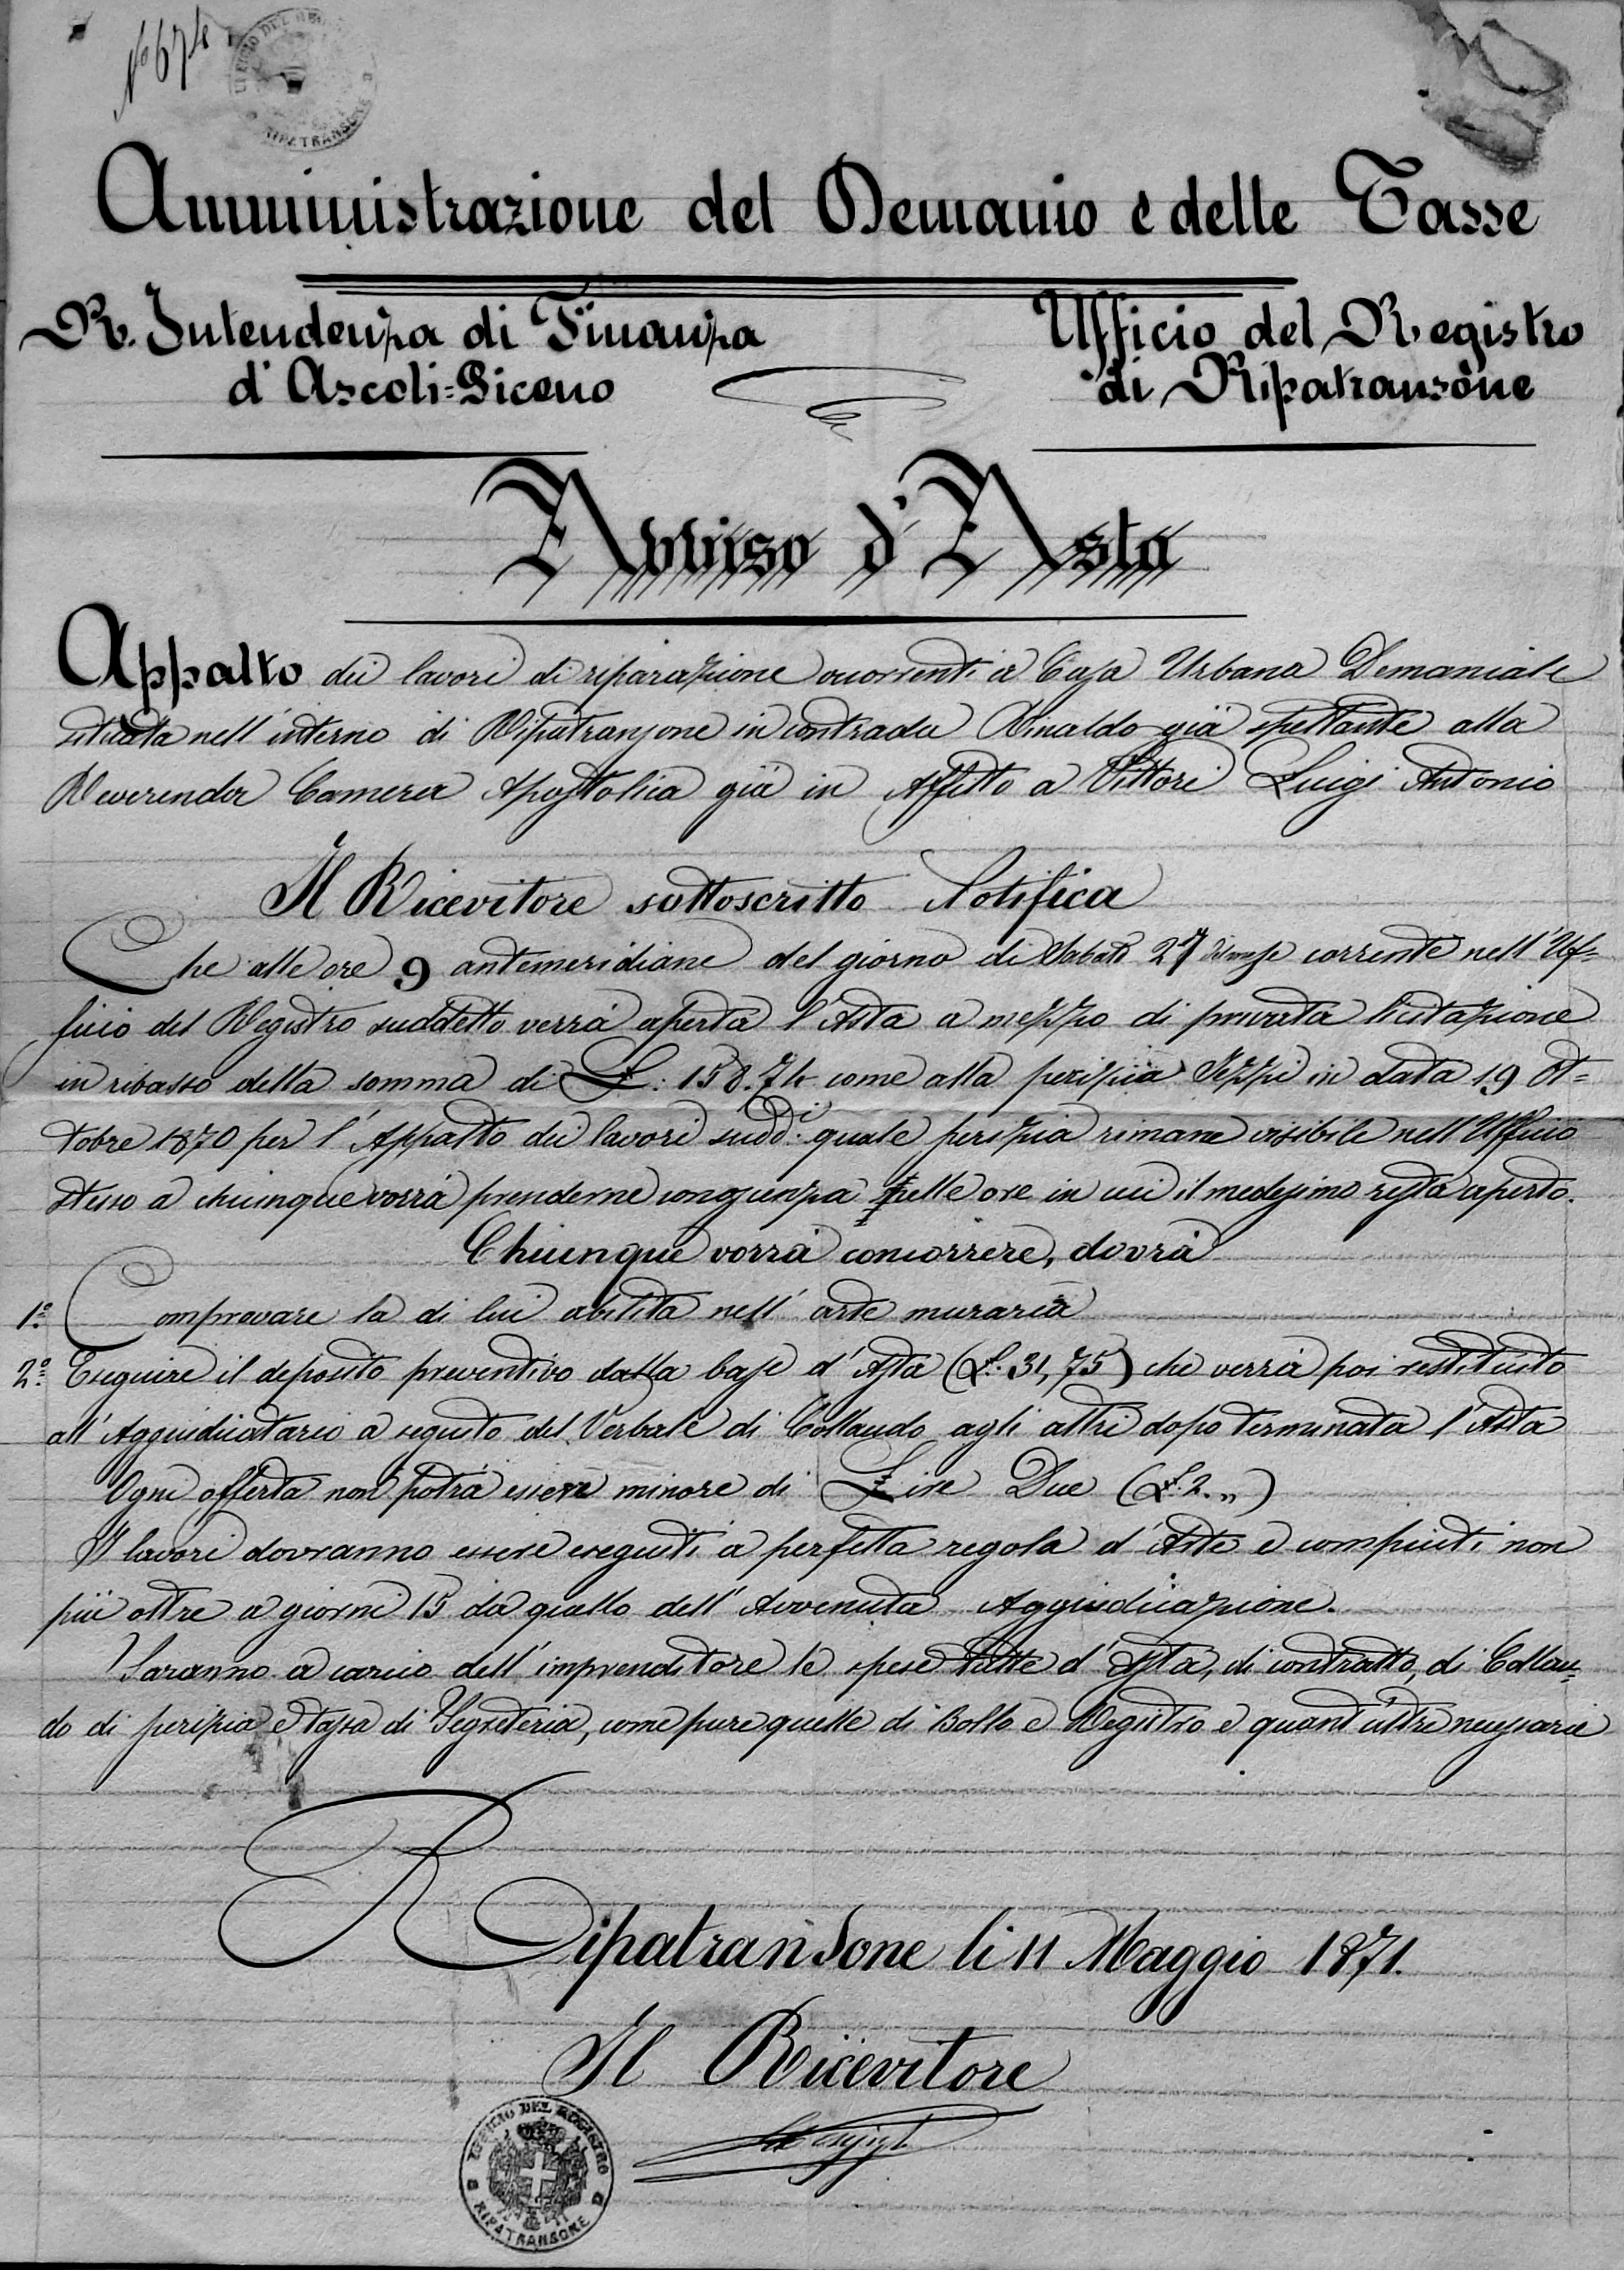 N° 674
UFFICIO DEL REGISTRO
RIPATRANSONE
Amministrazione del Demanio e delle Tasse
R. Intendenza di Finanza
d'Ascoli-Piceno
Ufficio del Registro
di Ripatransone
Avviso d'Asta
Appalto dei lavori di riparazione occorrenti a Casa Urbana Demaniale
situata nell'interno di Ripatransone in contrada Rinaldo già spettante alla
Reverenda Camera Apostolica già in Affitto a Vittori Luigi Antonio
Il Ricevitore sottoscritto Notifica
Che alle ore 9 antemeridiane del giorno di Sabato 27 del mese corrente nell'Uf=
ficio del Registro suddetto verrà aperta l'Asta a mezzo di privata licitazione
in ribasso della somma di L: 158.74 come alla perizia in data 19 Ot=
tobre 1870 per l'Appalto dei lavori sudd.i quale perizia rimane visibile nell'Ufficio
stesso a chiunque vorrà prenderne conoscenza nelle ore in cui il medesimo resta aperto.
Chiunque vorrà concorrere, dovrà
1.° Comprovare la di lui abilità nell'arte muraria
2.° Eseguire il deposito preventivo dalla base d'Asta (L. 31,75) che verrà poi restituito
all'Aggiudicatario a seguito del Verbale di Collaudo agli altri dopo terminata l'Asta
Ogni offerta non potrà essere minore di Lire Due (L. 2.„)
I lavori dovranno essere eseguiti a perfetta regola d'Arte e compiuti non
più oltre a giorni 15 da quello dell'Avvenuta Aggiudicazione.
Saranno a carico dell'imprenditore le spese tutte d'Asta, di contratto, di Collau=
do di perizia e tassa di Segreteria, come pure quelle di Bollo e Registro e quant'altre necessarie
Ripatransone li 11 Maggio 1871.
Il Ricevitore
UFFICIO DEL REGISTRO
RIPATRANSONE